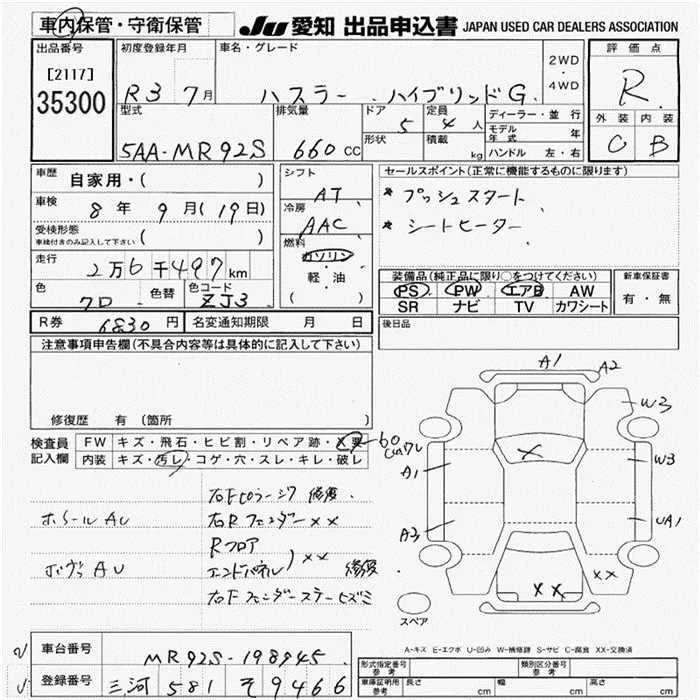 車内保管・守衛保管
JU 愛知 出品申込書 JAPAN USED CAR DEALERS ASSOCIATION
出品番号
[2117]
35300
初度登録年月
R3 7月
車名・グレード
ハスラー ハイブリッドG
2WD
・
4WD
評価点
R
外装 内装
C B
型式
5AA-MR92S
排気量
660 CC
ドア
5
定員
4 人
形状
積載
kg
ディーラー・並行
モデル年式 年
ハンドル 左・右
車歴
自家用・( )
車検
8年 9月(19日)
受検形態
車検付きのみ記入して下さい ( )
走行
2万6千497km
色
7D
色替
色コード
ZJ3
シフト
AT
冷房
AAC
燃料
ガソリン
軽・油
( )
セールスポイント(正常に機能するものに限ります)
* プッシュスタート
* シートヒーター
装備品(純正品に限り○をつけてください)
PS PW エアB AW
SR ナビ TV カワシート
新車保証書
有・無
R券 6830円
名変通知期限 月 日
後日品
注意事項申告欄(不具合内容等は具体的に記入して下さい)
修復歴 有(箇所 )
検査員
記入欄
FW キズ・飛石・ヒビ割・リペア跡・X要
内装 キズ・汚レ・コゲ・穴・スレ・キレ・破レ
60
cm
A1
A2
W3
A1
W3
A3
UA1
X
XX
XX
スペア
右Fピラージワ 修復
ホイールAU
右Rフェンダー XX
Rフロア
エンドパネル ) XX 修復
右Fフェンダーステーヒズミ
A-キズ E-エクボ U-凹み W-補修跡 S-サビ C-腐食 XX-交換済
車台番号
MR92S-198945
登録番号
三河 581 そ 9466
形式指定番号
参考
類別区分番号
参考
車庫証明用
参考
長さ cm
幅 cm
高さ cm